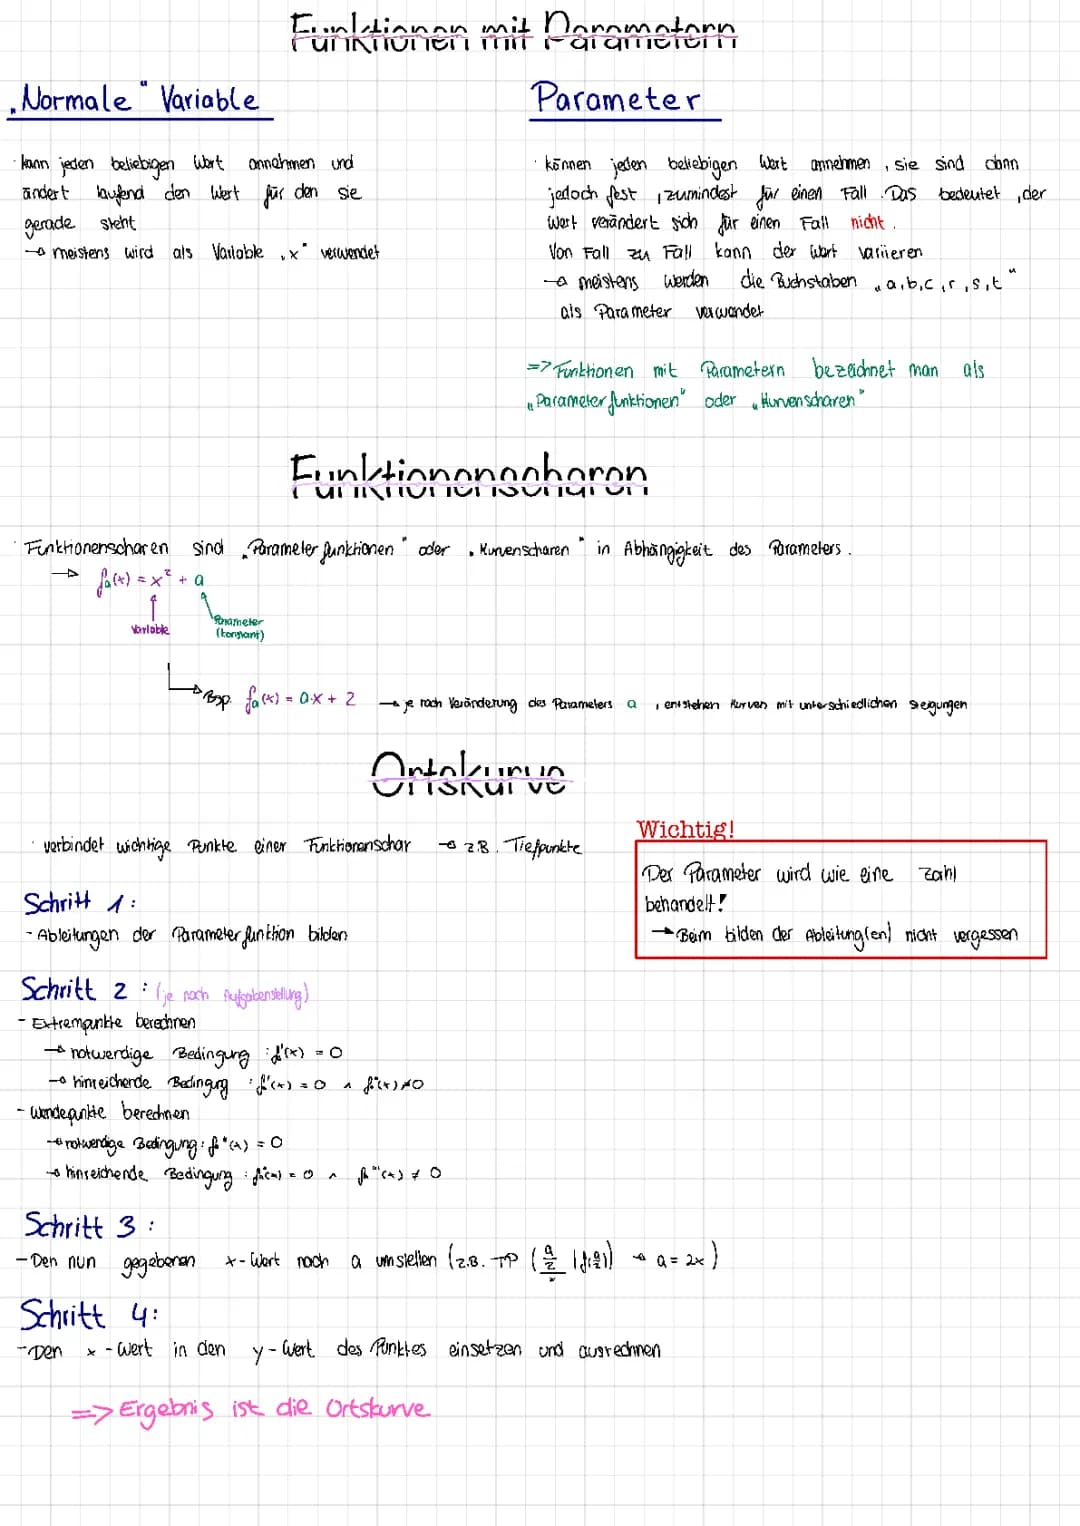 Funktionen mit Parametern
„Normale“ Variable
· kann jeden beliebigen Wert annehmen und
ändert laufend den Wert für den sie
gerade steht
→ meistens wird als Variable „x“ verwendet
Parameter
· können jeden beliebigen Wert annehmen, sie sind dann
jedoch fest, zumindest für einen Fall. Das bedeutet, der
Wert verändert sich für einen Fall nicht.
Von Fall zu Fall kann der Wert variieren
→ meistens werden die Buchstaben „a,b,c,r,s,t“
als Parameter verwendet
=> Funktionen mit Parametern bezeichnet man als
„Parameterfunktionen“ oder „Kurvenscharen“
Funktionenscharen
· Funktionenscharen sind „Parameterfunktionen“ oder „Kurvenscharen“ in Abhängigkeit des Parameters.
→ fₐ(x) = x² + a
Variable
Parameter
(konstant)
→ Bsp. fₐ(x) = a·x + 2 → je nach Veränderung des Parameters a, entstehen Kurven mit unterschiedlichen Steigungen
Ortskurve
· verbindet wichtige Punkte einer Funktionenschar → z.B. Tiefpunkte
Wichtig!
Der Parameter wird wie eine Zahl
behandelt!
→ Beim bilden der Ableitung(en) nicht vergessen
Schritt 1:
- Ableitungen der Parameterfunktion bilden
Schritt 2: (je nach Aufgabenstellung)
- Extrempunkte berechnen
→ notwendige Bedingung: fₐ'(x) = 0
→ hinreichende Bedingung: fₐ'(x) = 0 ∧ fₐ''(x) ≠ 0
- Wendepunkte berechnen
→ notwendige Bedingung: fₐ''(x) = 0
→ hinreichende Bedingung: fₐ''(x) = 0 ∧ fₐ'''(x) ≠ 0
Schritt 3:
- Den nun gegebenen x-Wert nach a umstellen (z.B. TP (a/2 | f(a/2)) → a = 2x)
x
Schritt 4:
- Den x-Wert in den y-Wert des Punktes einsetzen und ausrechnen
=> Ergebnis ist die Ortskurve